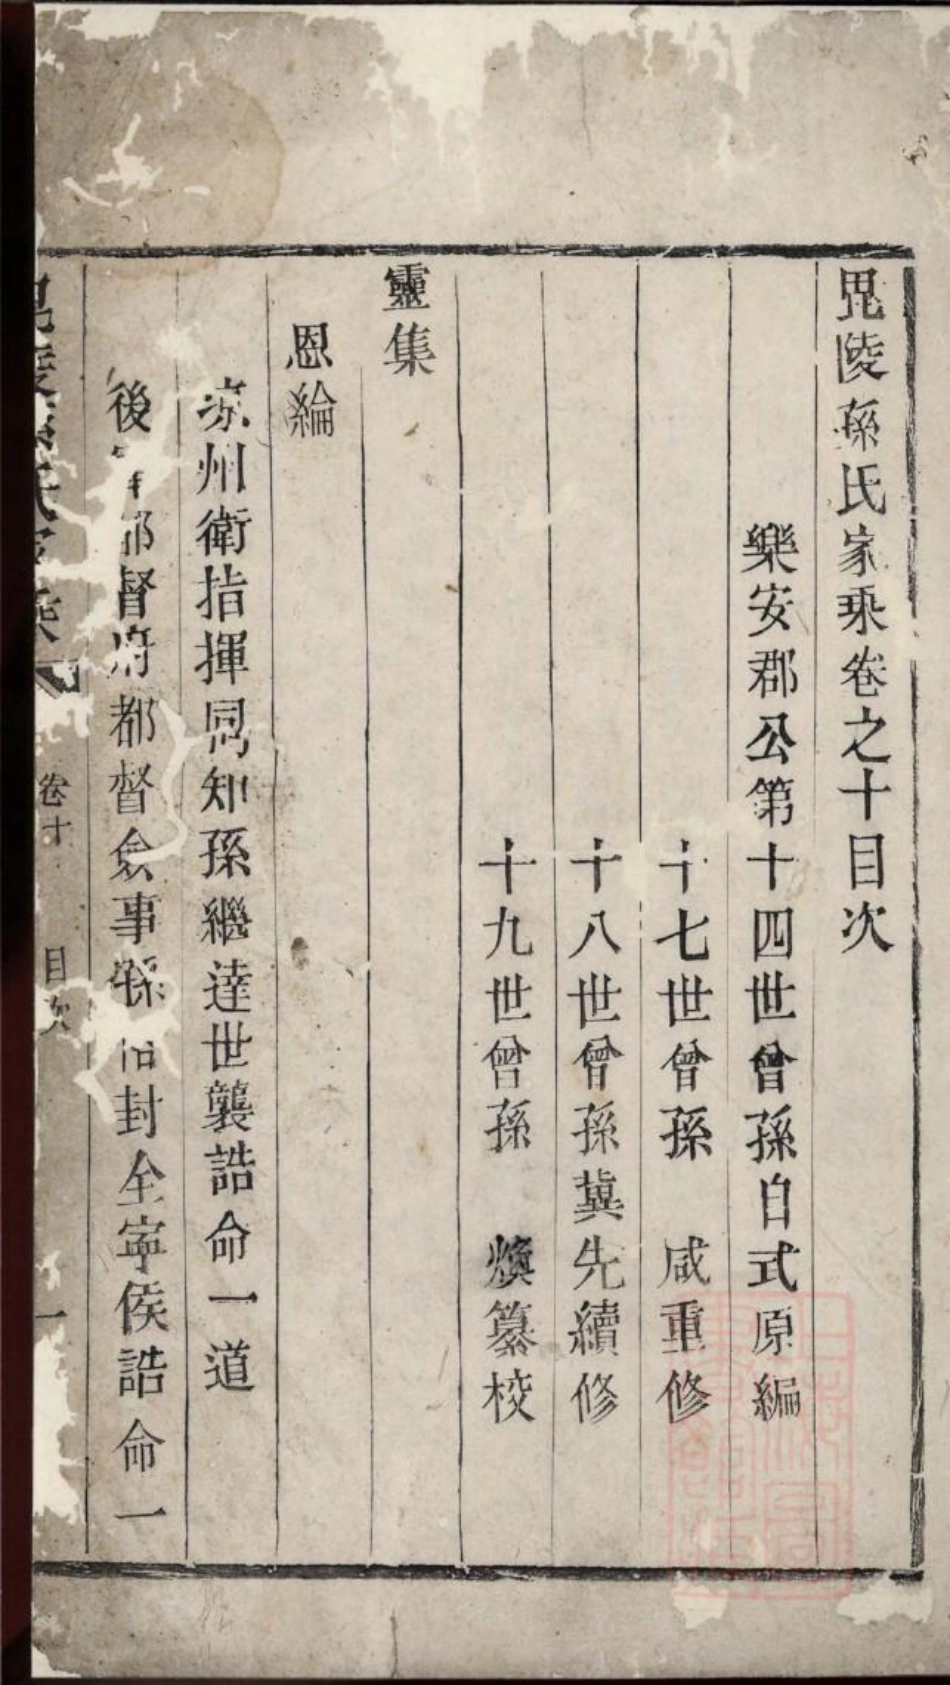 毘陵孫氏家乘卷之十目次
樂安郡公第十四世曾孫自式原編
十七世曾孫 咸重修
十八世曾孫蓂先續修
十九世曾孫 煥纂校
靈集
恩綸
涼州衛指揮同知孫繼達世襲誥命一道
後軍都督府都督僉事孫 封全寧侯誥命一
毘陵孫氏家乘 卷十 目次 一